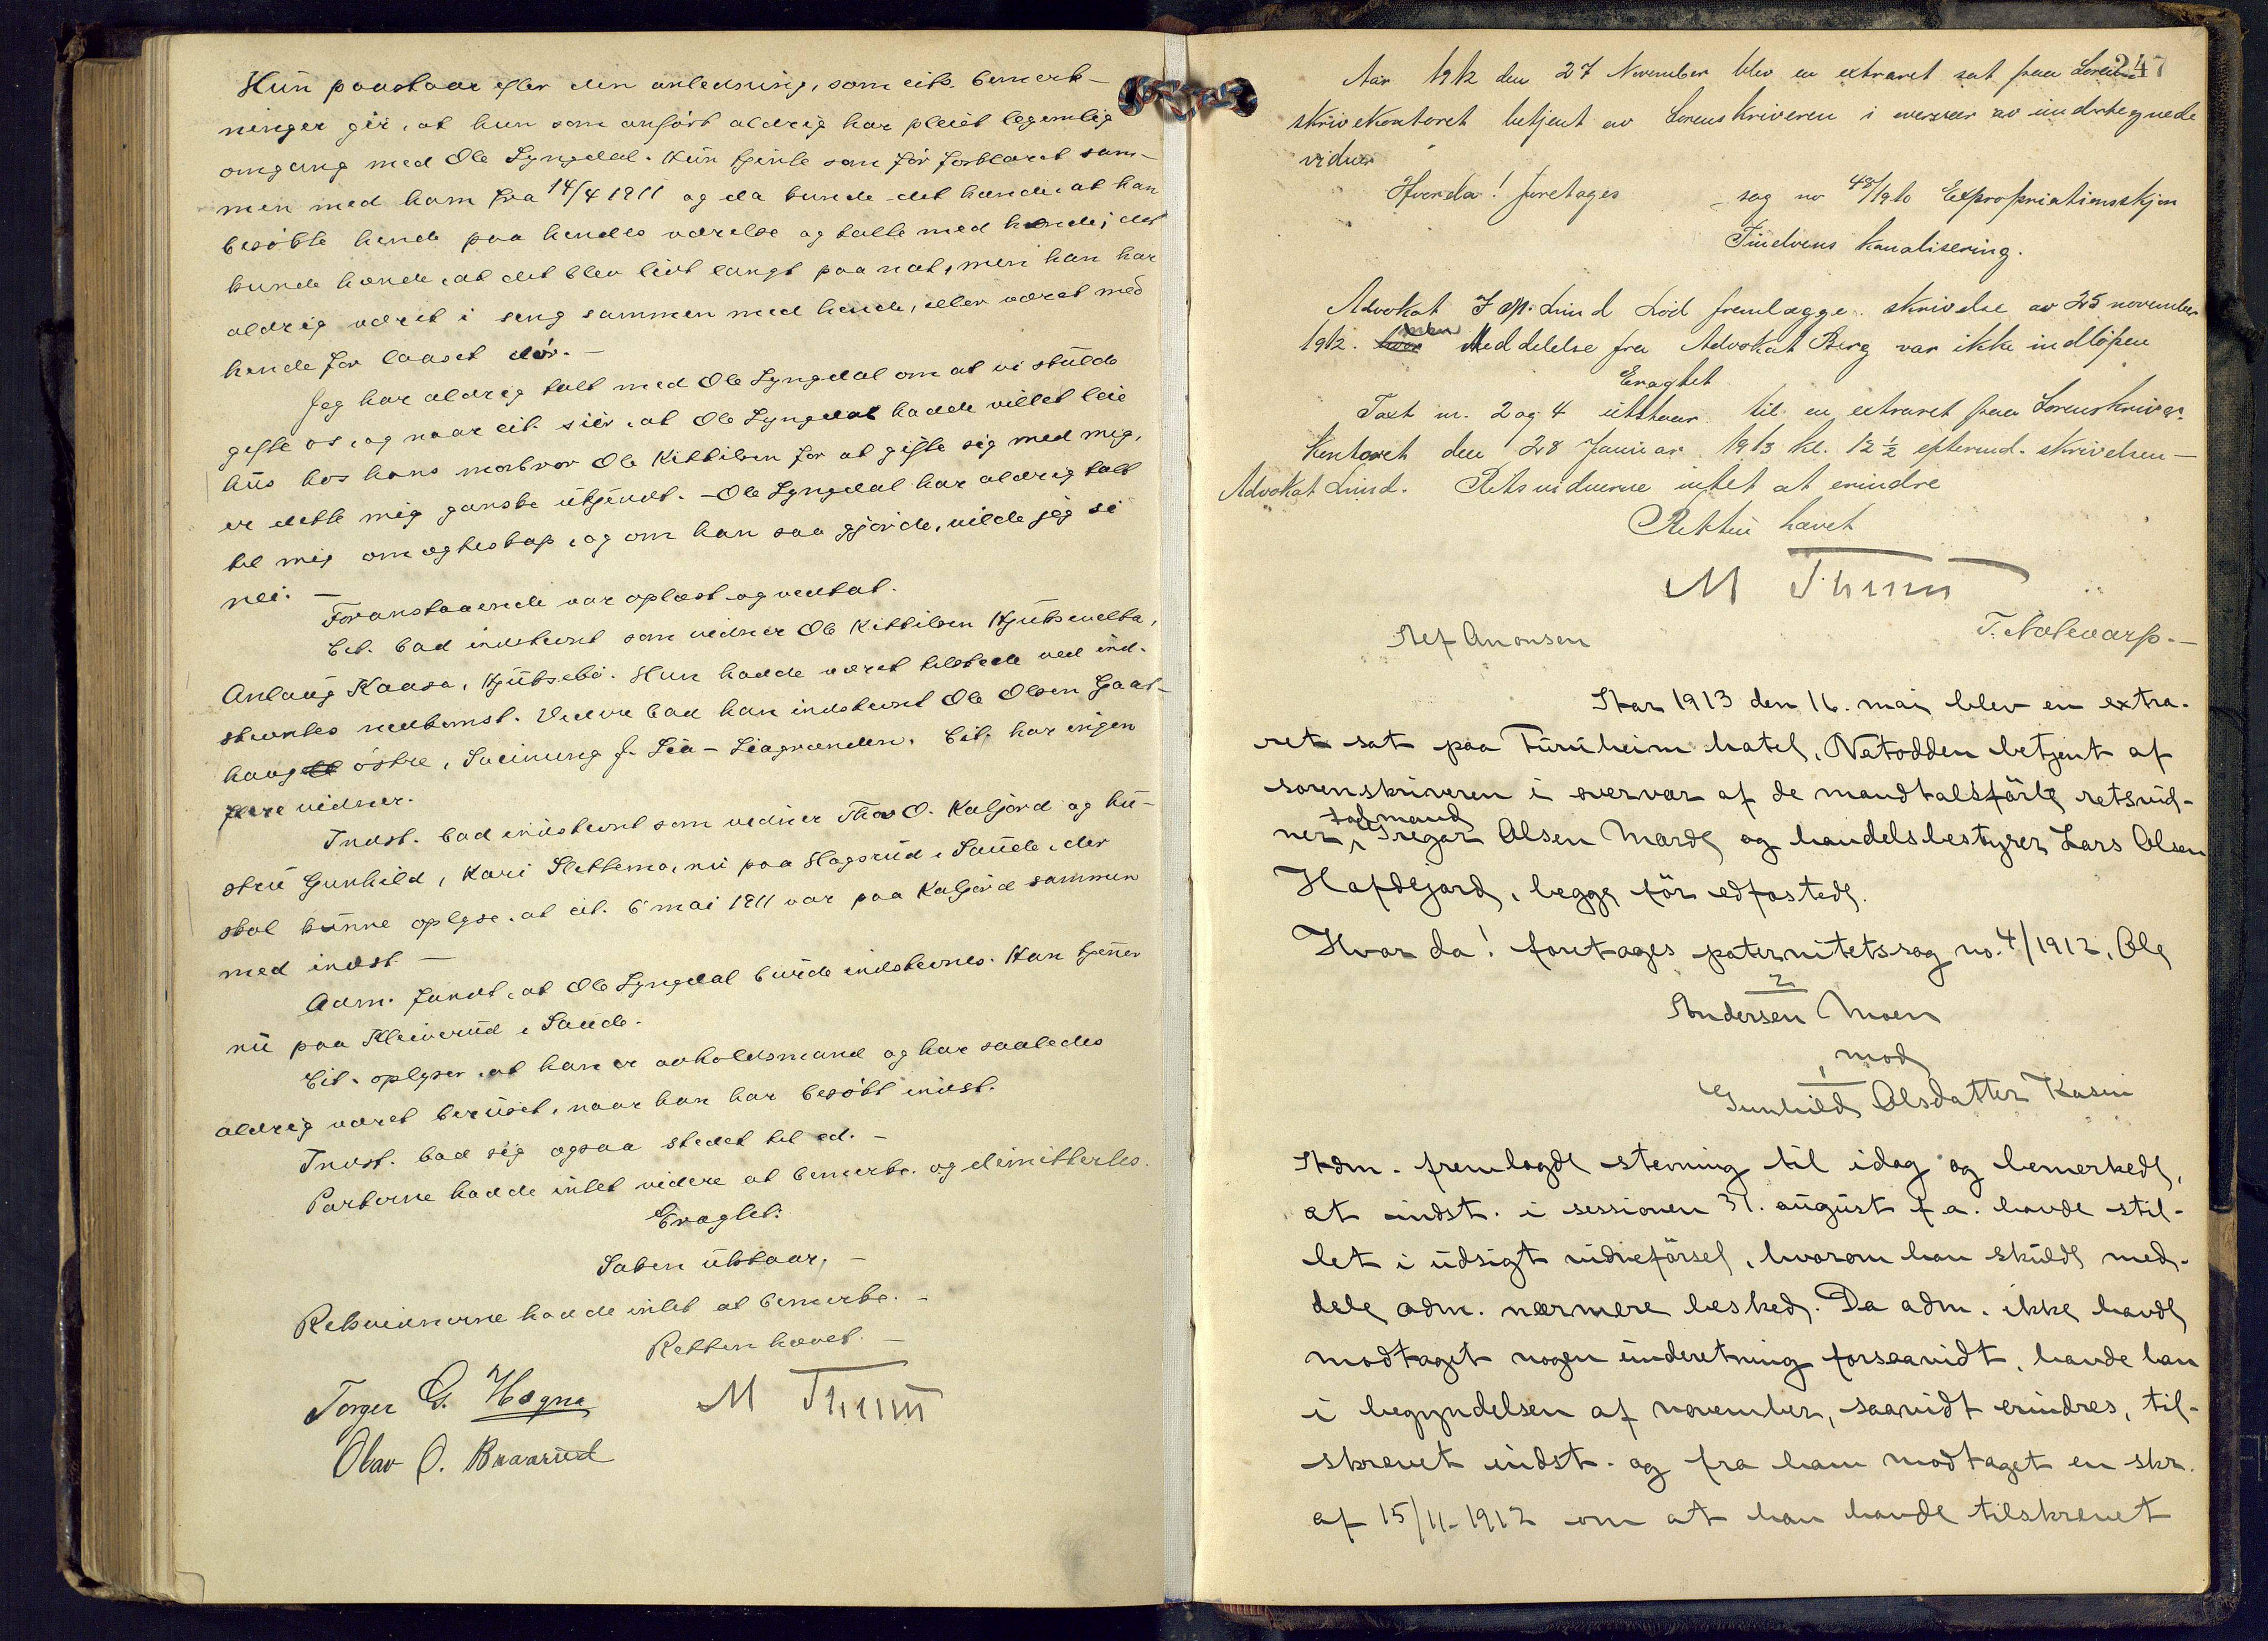 Hun paastaar efter den anledning, som cits. bemerk-
ninger gir, at hun som anført aldrig har pleiet legemlig
omgang med Ole Lyngdal. Hun tjente som før forklaret sam-
men med ham fra 14/4 1911 og da kunde det hænde at han
besøkte hende paa hendes værelse og talte med hende; det
kunde hænde, at det blev litt langt paa nat, men han har
aldrig været i seng sammen med hende, eller været med
hende for laaset dør. -
Jeg har aldrig talt med Ole Lyngdal om at vi skulde
gifte os, og naar cit. sier, at Ole Lyngdal hadde villet leie
hus hos hans morbror Ole Kittilsen for at gifte sig med mig,
er dette mig ganske ukjendt. - Ole Lyngdal har aldrig talt
til mig om egteskap, og om han saa gjorde, vilde jeg si
nei. -
Foranstaaende var oplæst og vedtat.
Cit. bad indstevnt som vidner Ole Kittilsen
Anlaug Kaasa, Hjuksebø. Hun hadde været tilstede ved ind-
stevntes nedkomst. Videre bad han indstevnt Ole Olsen Haat-
haug østre, Sveinung J. Lia - Liagrænden. Cit. har ingen
flere vidner.
Indst. bad indstevnt som vidner Thor O. Kaljord og hu-
stru Gunhild, Kari Slettemo, nu paa Hagsrud i Saude, der
skal kunne oplyse, at cit. 6 mai 1911 var paa Kaljord sammen
med indst. -
Adm. fandt, at Ole Lyngdal burde indstevnes. Han tjener
nu paa Kleiverud i Saude.
Cit. oplyser, at han er avholdsmand og har saaledes
aldrig været beruset, naar han har besøkt indst.
Indst. bad sig ogsaa stedet til ed. -
Parterne hadde intet videre at bemerke og dimitterles.
Eragtet:
Saken utstaar. -
Retsvidnerne hadde intet at bemerke. -
Retten hævet. -
Torger G. Hogna M Thrum
Olav O. Braarud
247
Aar 1912 den 27 November blev en extraret sat paa Soren-
skriverkontoret betjent av Sorenskriveren i overvær av undertegnede
vidner
Hvorda! foretages sag no 48/1910 Expropriationsskjøn
Tindelvens kanalisering.
Advokat J. M. Lund lod fremlægge skrivelse av 25 november
1912. men Meddelelse fra Advokat Berg var ikke indløpen
Eragtet
Taxt nr. 2 og 4 utstaar til en extraret paa Sorenskriver-
kontoret den 28 Januar 1913 kl. 12 ½ efterm. skrivelsen -
Advokat Lund. Retsvidnerne intet at erindre
Retten hævet
M Thrum
T. Notevarp. -
Alf Anonsen
Aar 1913 den 16. mai blev en extra-
ret sat paa Furuheim hotel, Notodden betjent af
sorenskriveren i overvær af de mandtalsførte retsvid-
ner, Tregar Olsen Marde og handelsbestyrer Lars Olsen
Hafdejord, begge før edfæstede.
Hvor da! foretages paternitetssag no. 4/1912, Ole
2
Andersen Moen
mod
Gunhild Olsdatter Kasin
Adm. fremlagde stevning til idag og bemerkede,
at indst. i sessionen 31. august f. a. havde stil-
let i udsigt vidneførsel, hvorom han skulde med-
dele adm. nærmere besked. Da adm. ikke havde
modtaget nogen underetning forsaavidt, havde han
i begyndelsen af november, saavidt erindres, til-
skrevet indst. og fra ham modtaget en skr.
af 15/11-1912 om at han havde tilskrevet